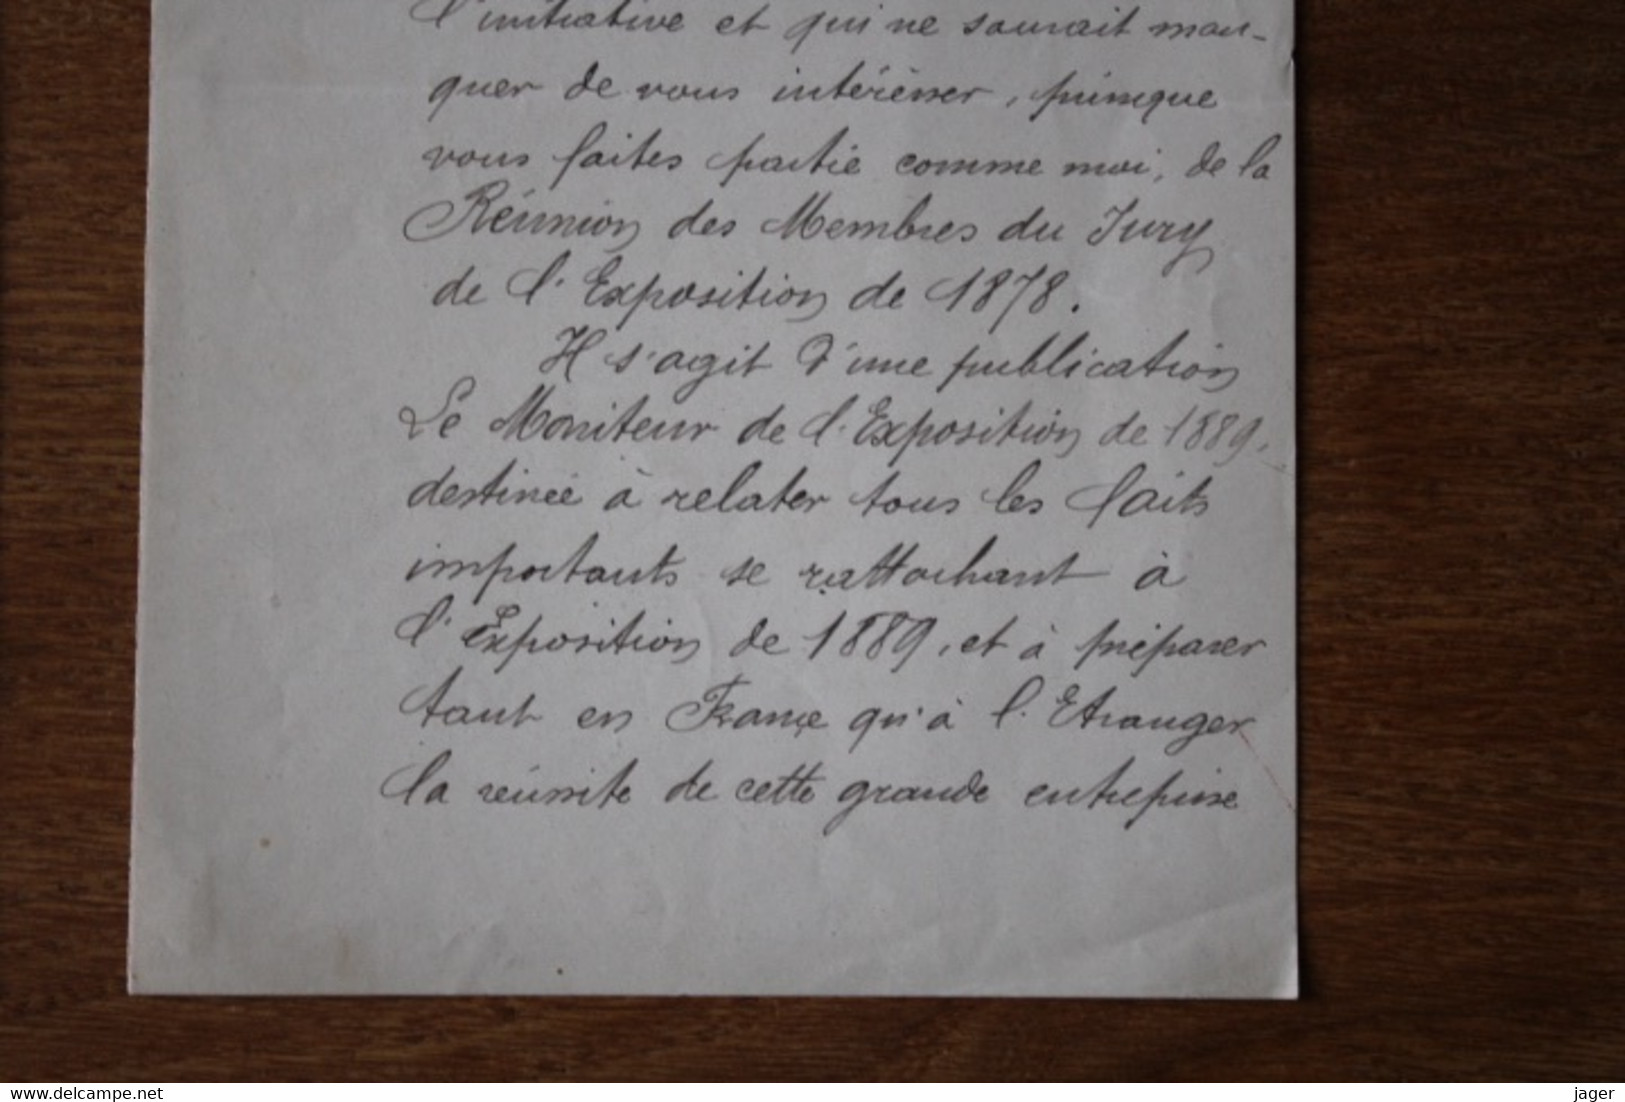 l'initiative et qui ne saurait man-
quer de vous intéresser, puisque
vous faites partie comme moi, de la
Réunion des Membres du Jury
de l'Exposition de 1878.
Il s'agit d'une publication
Le Moniteur de l'Exposition de 1889,
destinée à relater tous les faits
importants se rattachant à
l'Exposition de 1889, et à préparer
tant en France qu'à l'Etranger
la réussite de cette grande entreprise
delcampe.net
jager